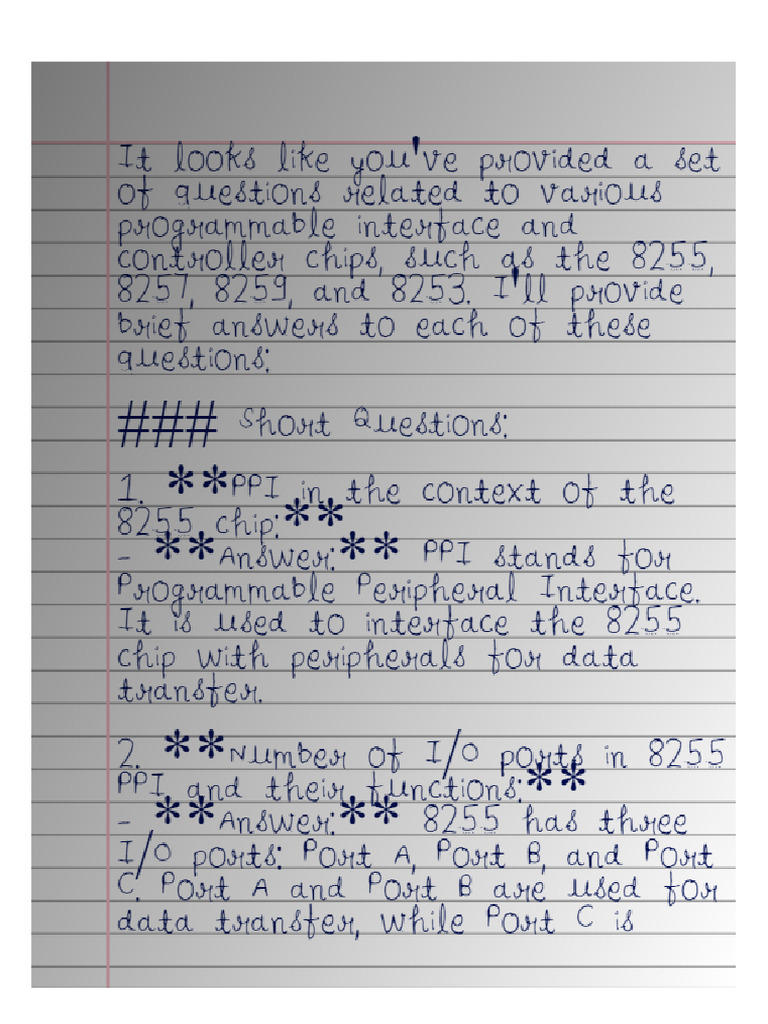 It looks like you've provided a set
of questions related to various
programmable interface and
controller chips, such as the 8255,
8257, 8259, and 8253. I'll provide
brief answers to each of these
questions:
### Short Questions:
1. **PPI in the context of the
8255 chip:**
- **Answer:** PPI stands for
Programmable Peripheral Interface.
It is used to interface the 8255
chip with peripherals for data
transfer.
2. **Number of I/O ports in 8255
PPI and their functions:**
- **Answer:** 8255 has three
I/O ports: Port A, Port B, and Port
C. Port A and Port B are used for
data transfer, while Port C is